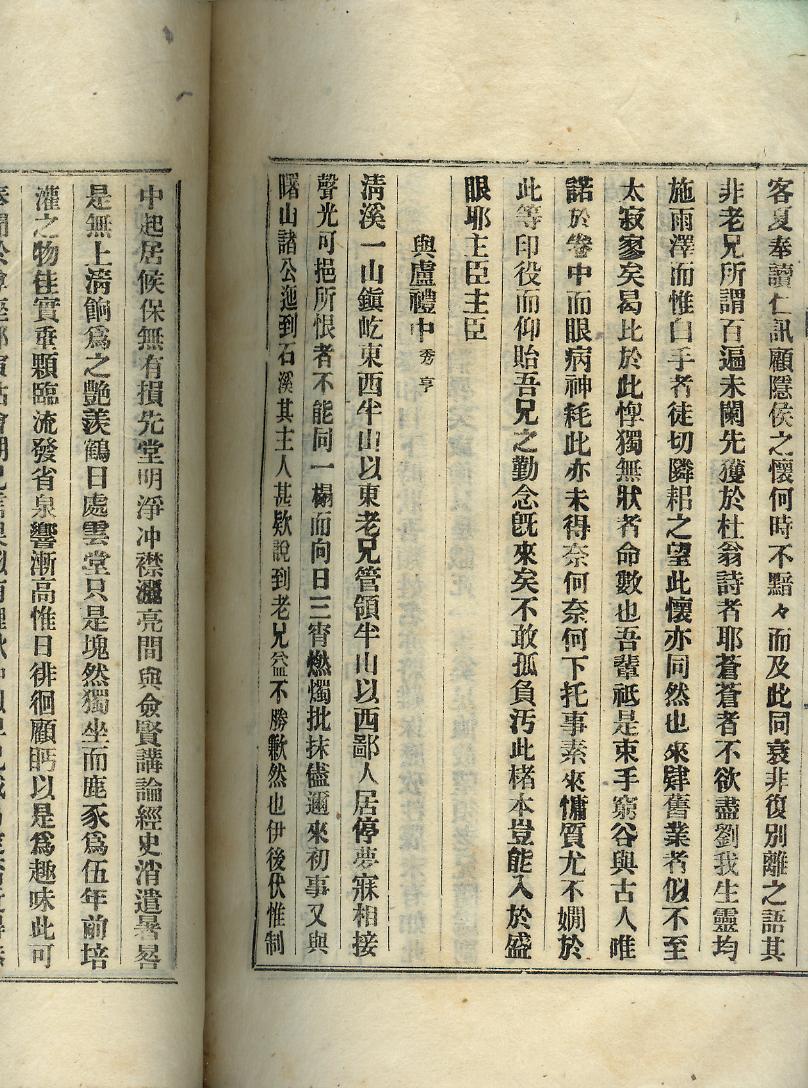 客夏奉讀仁訊顧隱侯之懷何時不黯々而及此同衰非復別離之語其
非老兄所謂百遍未闌先獲於杜翁詩者耶蒼蒼者不欲盡劉我生靈均
施雨澤而惟白手者徒切隣耜之望此懷亦同然也來肄舊業者似不至
太寂寥矣曷比於此惸獨無狀者命數也吾輩祗是束手窮谷與古人唯
諾於卷中而眼病神耗此亦未得奈何奈何下托事素來慵質尤不嫺於
此等印役而仰貽吾兄之勤念旣來矣不敢孤負汚此楮本豈能入於盛
眼耶主臣主臣
與盧禮中秀亨
淸溪一山鎭屹東西半山以東老兄管領半山以西鄙人居停夢寐相接
聲光可挹所恨者不能同一榻而向日三宵燃燭批抹儘邇來初事又與
曙山諸公迤到石溪其主人甚欵說到老兄益不勝歉然也伊後伏惟制
中起居候保無有損先堂明淨冲襟灑亮間與僉賢講論經史消遣暑晷
是無上淸餉爲之艶羨鶴日處雲堂只是塊然獨坐而鹿豕爲伍年前培
灌之物佳實垂顆臨流發省泉響漸高惟日徘徊顧眄以是爲趣味此可